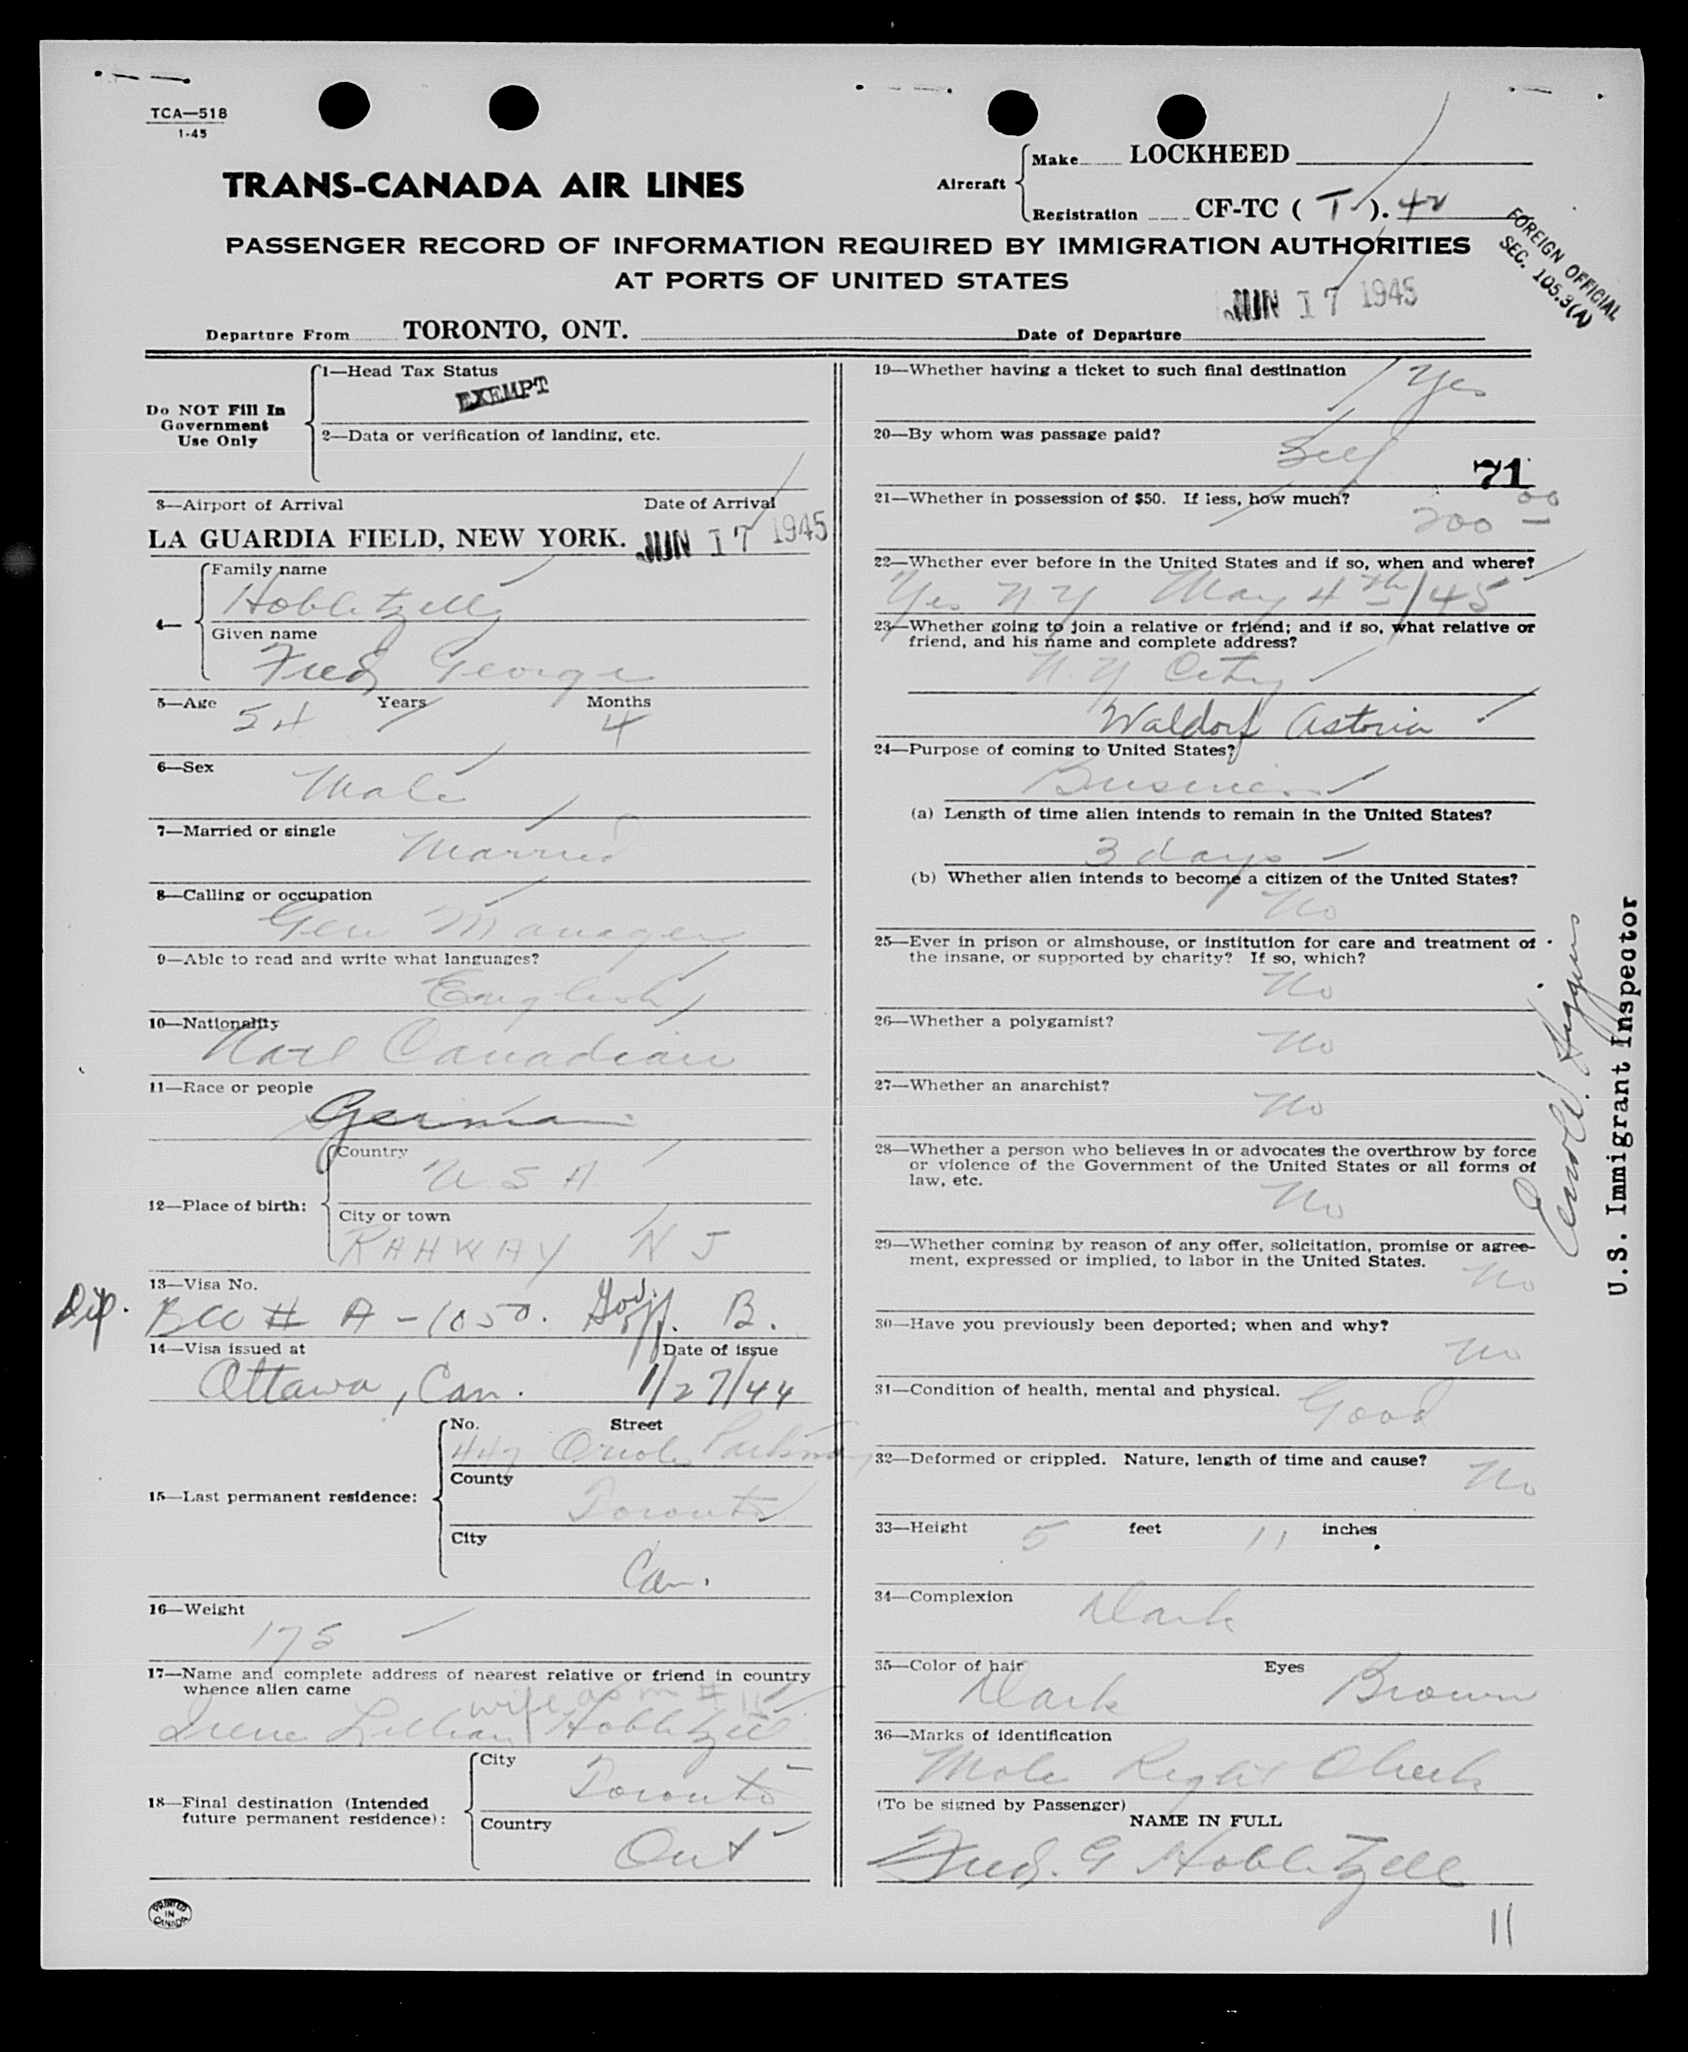 TCA—518
1-45
TRANS-CANADA AIR LINES
Aircraft
Make LOCKHEED
Registration CF-TC ( T ). 42
PASSENGER RECORD OF INFORMATION REQUIRED BY IMMIGRATION AUTHORITIES
AT PORTS OF UNITED STATES
FOREIGN OFFICIAL
SEC. 105.3(A)
Departure From TORONTO, ONT. Date of Departure JUN 17 1945
Do NOT Fill In
Government
Use Only
1—Head Tax Status
EXEMPT
2—Data or verification of landing, etc.
3—Airport of Arrival Date of Arrival
LA GUARDIA FIELD, NEW YORK. JUN 17 1945
4—
Family name
Hoblitzell
Given name
Fred George
5—Age 54 Years Months 4
6—Sex
Male
7—Married or single
Married
8—Calling or occupation
Gen Manager
9—Able to read and write what languages?
English
10—Nationality
Natl Canadian
11—Race or people
German
12—Place of birth:
Country
U S A
City or town
RAHWAY N J
13—Visa No.
Dip. BCC # A-1050. Gov. Off. B.
14—Visa issued at Date of issue
Ottawa, Can. 1/27/44
15—Last permanent residence:
No. Street
447 Oriole Parkway
County
Toronto
City
Can.
16—Weight
175
17—Name and complete address of nearest relative or friend in country
whence alien came
wife as in #
Irene Lillian Hoblitzell
18—Final destination (Intended
future permanent residence):
City
Toronto
Country
Ont
PRINTED
IN
CANADA
19—Whether having a ticket to such final destination Yes
20—By whom was passage paid?
Self
71
21—Whether in possession of $50. If less, how much?
200 00
22—Whether ever before in the United States and if so, when and where?
Yes N Y May 4th/45
23—Whether going to join a relative or friend; and if so, what relative or
friend, and his name and complete address?
N. Y City
Waldorf Astoria
24—Purpose of coming to United States?
Business
(a) Length of time alien intends to remain in the United States?
3 days
(b) Whether alien intends to become a citizen of the United States?
No
25—Ever in prison or almshouse, or institution for care and treatment of
the insane, or supported by charity? If so, which?
No
26—Whether a polygamist?
No
27—Whether an anarchist?
No
28—Whether a person who believes in or advocates the overthrow by force
or violence of the Government of the United States or all forms of
law, etc.
No
29—Whether coming by reason of any offer, solicitation, promise or agree-
ment, expressed or implied, to labor in the United States.
No
30—Have you previously been deported; when and why?
No
31—Condition of health, mental and physical.
Good
32—Deformed or crippled. Nature, length of time and cause?
No
33—Height 5 feet 11 inches
34—Complexion
Dark
35—Color of hair Eyes
Dark Brown
36—Marks of identification
Mole Right Cheek
(To be signed by Passenger)
NAME IN FULL
Fred. G Hoblitzell
11
Higgins
U.S. Immigrant Inspector